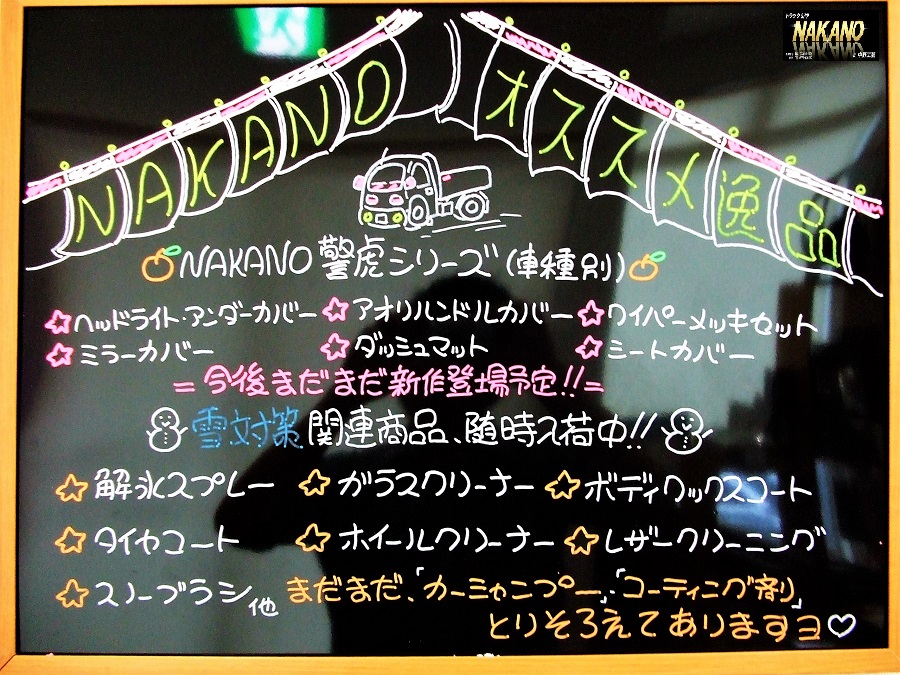 トラックショップ
NAKANO
NAKANO オススメ逸品
NAKANO 警虎シリーズ (車種別)
ヘッドライト・アンダーカバー アオリハンドルカバー ワイパーメッキセット
ミラーカバー ダッシュマット シートカバー
=今後まだまだ新作登場予定!!=
雪対策関連商品、随時入荷中!!
解氷スプレー ガラスクリーナー ボディワックスコート
タイヤコート ホイールクリーナー レザークリーニング
スノーブラシ他 まだまだ、「カーシャンプー」・「コーティング剤」
とりそろえてありますヨ♡